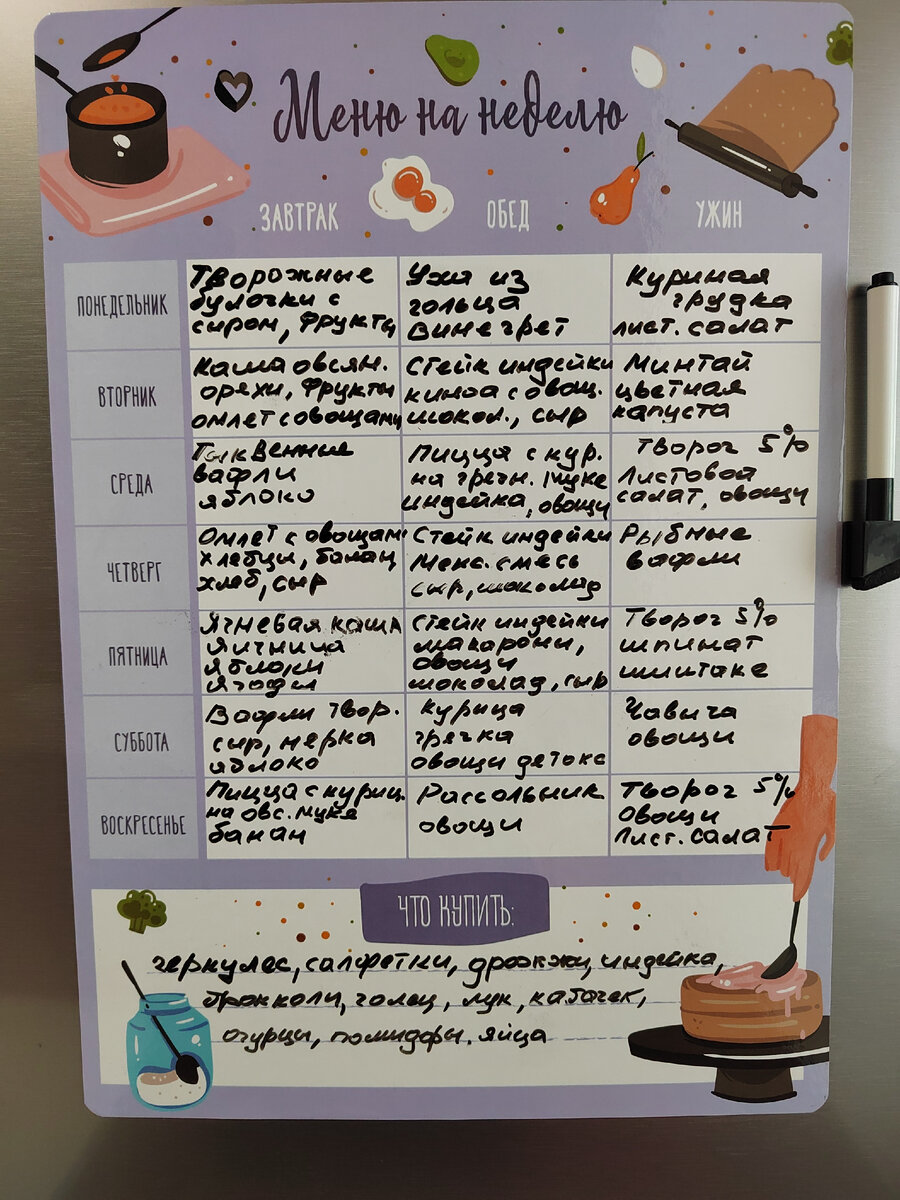 Меню на неделю
ЗАВТРАК ОБЕД УЖИН
ПОНЕДЕЛЬНИК
Творожные
булочки с
сыром, фрукты
Уха из
гольца
Винегрет
Куриная
грудка
лист. салат
ВТОРНИК
Каша овсян.
орехи, фрукты
омлет с овощами
Стейк индейки
киноа с овощ.
шокол., сыр
Минтай
цветная
капуста
СРЕДА
Тыквенные
вафли
яблоко
Пицца с кур.
на гречн. муке
индейка, овощи
Творог 5%
Листовой
салат, овощи
ЧЕТВЕРГ
Омлет с овощам
хлебцы, банан
хлеб, сыр
Стейк индейки
Мекс. смесь
сыр, шоколад
Рыбные
вафли
ПЯТНИЦА
Ячневая каша
Яичница
яблоки
ягоды
Стейк индейки
макарони,
овощи
шоколад, сыр
Творог 5%
шпинат
шиитаке
СУББОТА
Вафли твор.
сыр, нерка
яблоко
Курица
гречка
овощи детокс
Чавыча
овощи
ВОСКРЕСЕНЬЕ
Пицца с куриц.
на овс. муке
банан
Рассольник
овощи
Творог 5%
овощи
Лист. салат
ЧТО КУПИТЬ:
геркулес, салфетки, дрожжи, индейка,
брокколи, голец, лук, кабачек,
огурцы, помидоры. яйца